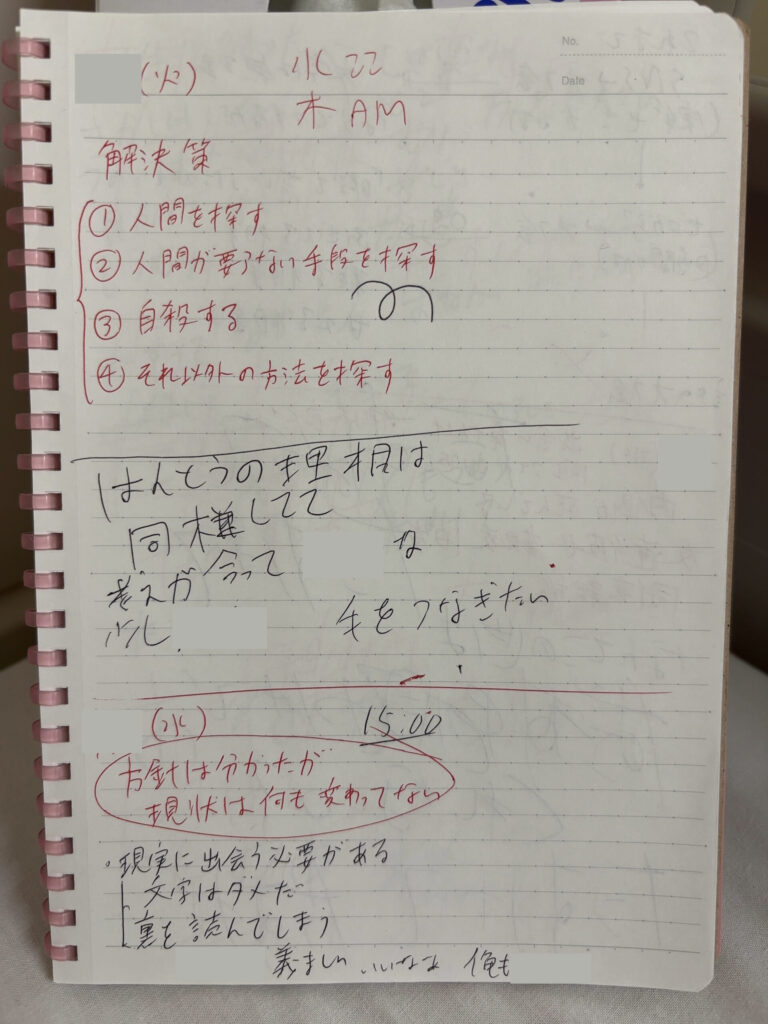 No.
Date
(火) 水 22
木 AM
解決策
① 人間を探す
② 人間が要らない手段を探す
③ 自殺する
④ それ以外の方法を探す
ほんとうの理想は
同棲してて
考えが合って な
少し 手をつなぎたい
(水) 15:00
方針は分かったが
現状は何も変わってない
・現実に出会う必要がある
文字はダメだ
裏を読んでしまう
羨ましい いいなあ 俺も